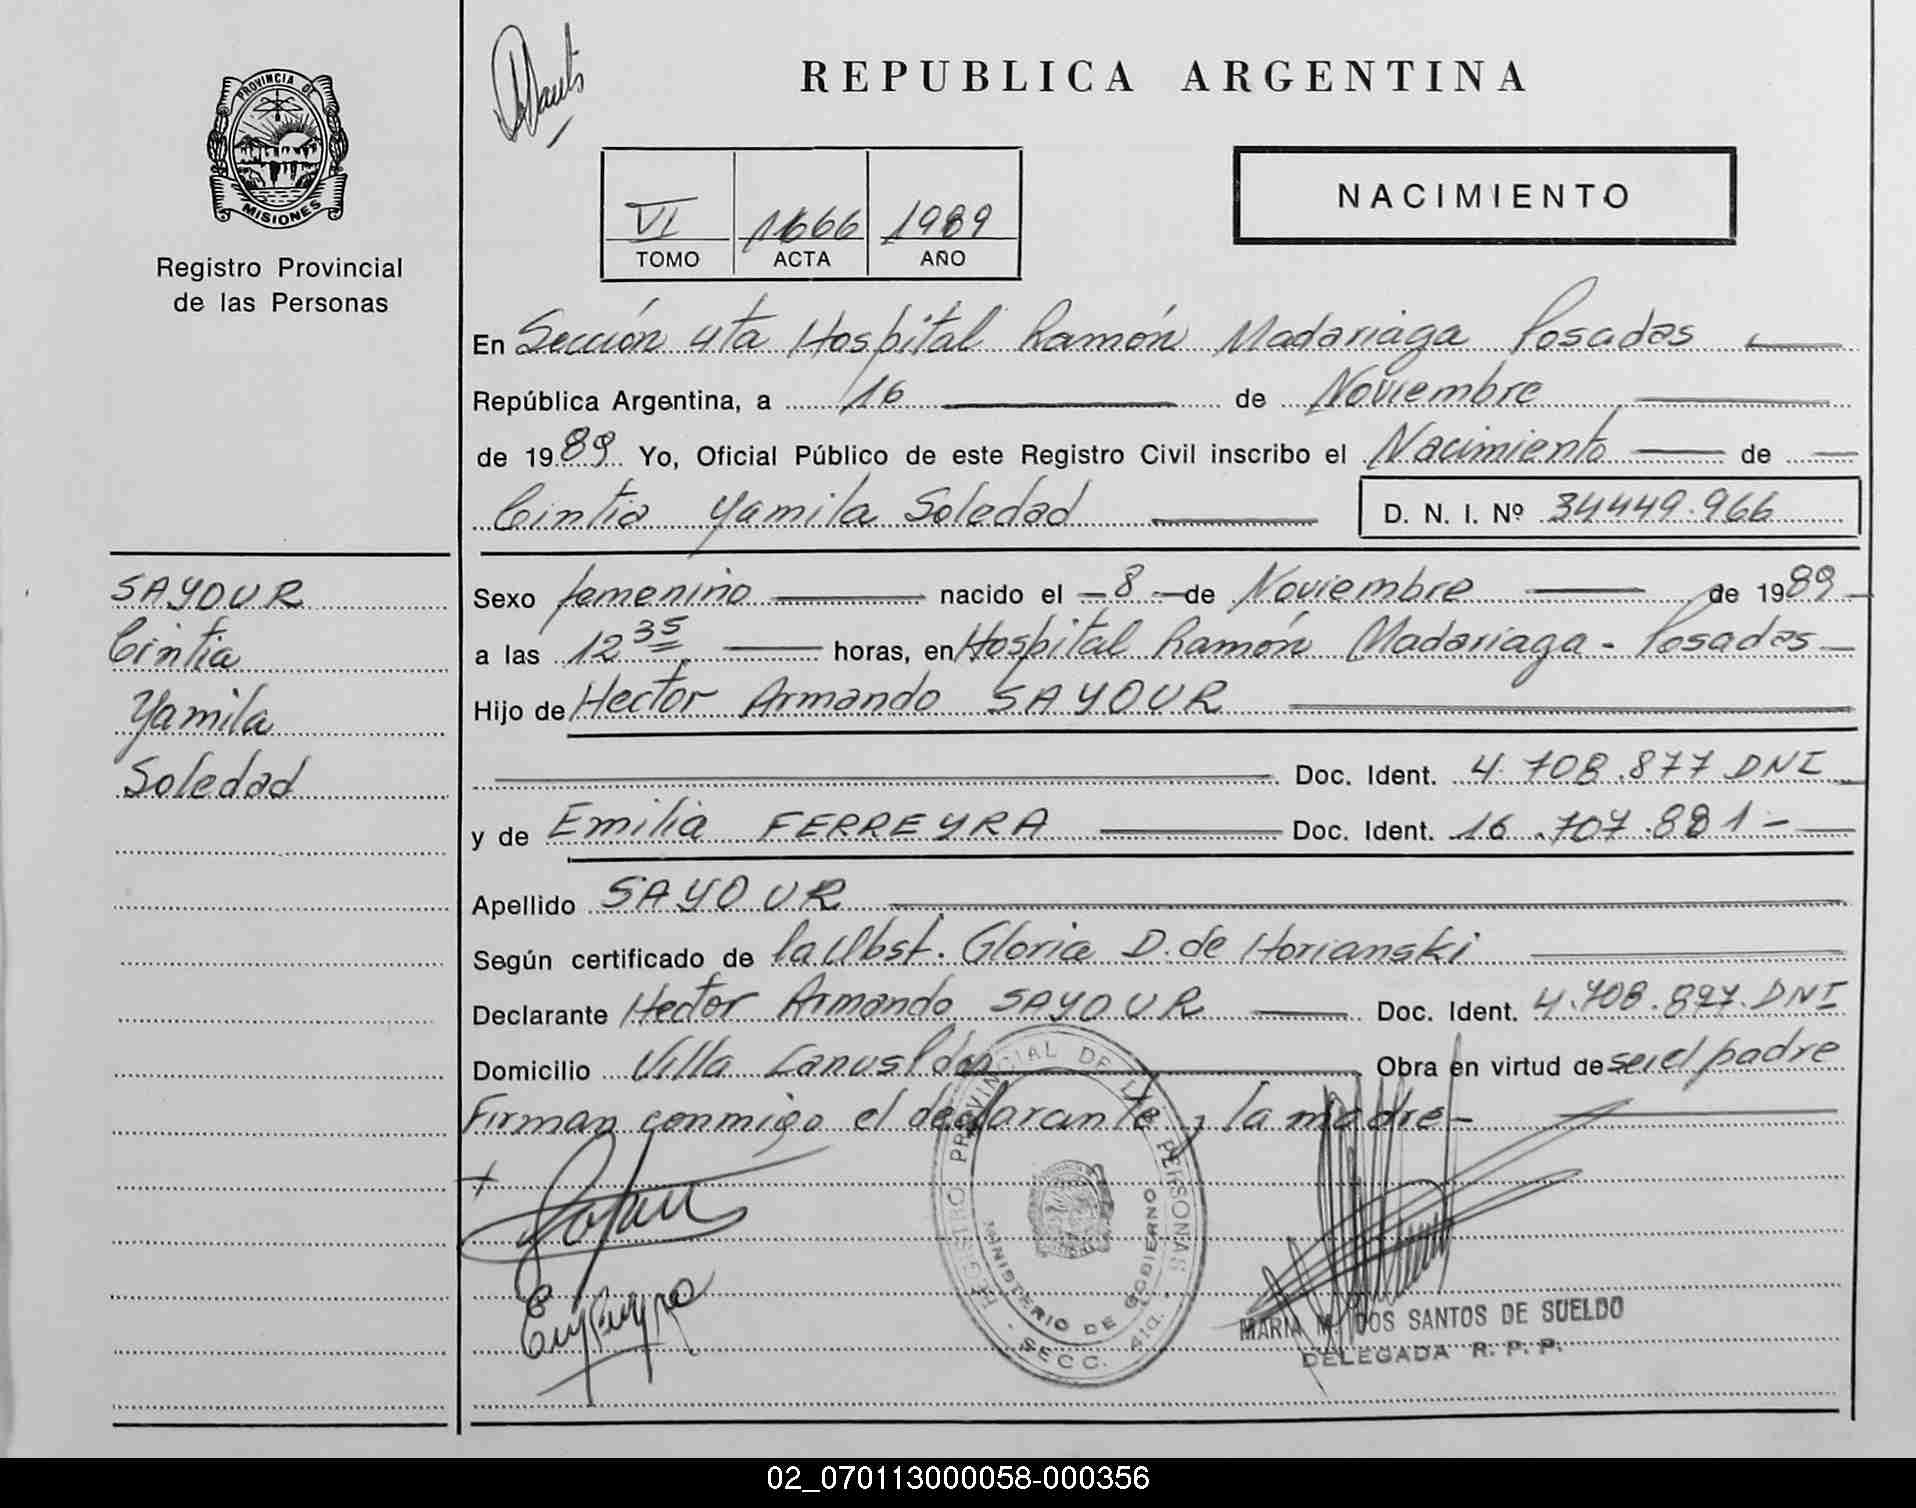 PROVINCIA DE
MISIONES
Registro Provincial
de las Personas
REPUBLICA ARGENTINA
NACIMIENTO
VI 1666 1989
TOMO ACTA AÑO
En Sección 4ta Hospital Ramón Madariaga Posadas
República Argentina, a 16 de Noviembre
de 1989 Yo, Oficial Público de este Registro Civil inscribo el Nacimiento de
Cintia Yamila Soledad D. N. I. Nº 34449.966
SAYOUR
Cintia
Yamila
Soledad
Sexo femenino nacido el - 8 - de Noviembre de 1989
a las 12 35 horas, en Hospital Ramón Madariaga - Posadas
Hijo de Hector Armando SAYOUR
Doc. Ident. 4.708.877 DNI
y de Emilia FERREYRA Doc. Ident. 16.707.881 -
Apellido SAYOUR
Según certificado de la Obst. Gloria D. de Horianski
Declarante Hector Armando SAYOUR Doc. Ident. 4.708.877 DNI
Domicilio Villa Obra en virtud de ser el padre
Firman conmigo el declarante y la madre -
REGISTRO PROVINCIAL DE LAS PERSONAS
MINISTERIO DE GOBIERNO
- SECC. 4ta. -
MARIA M. DOS SANTOS DE SUELDO
DELEGADA R. P. P.
02_070113000058-000356